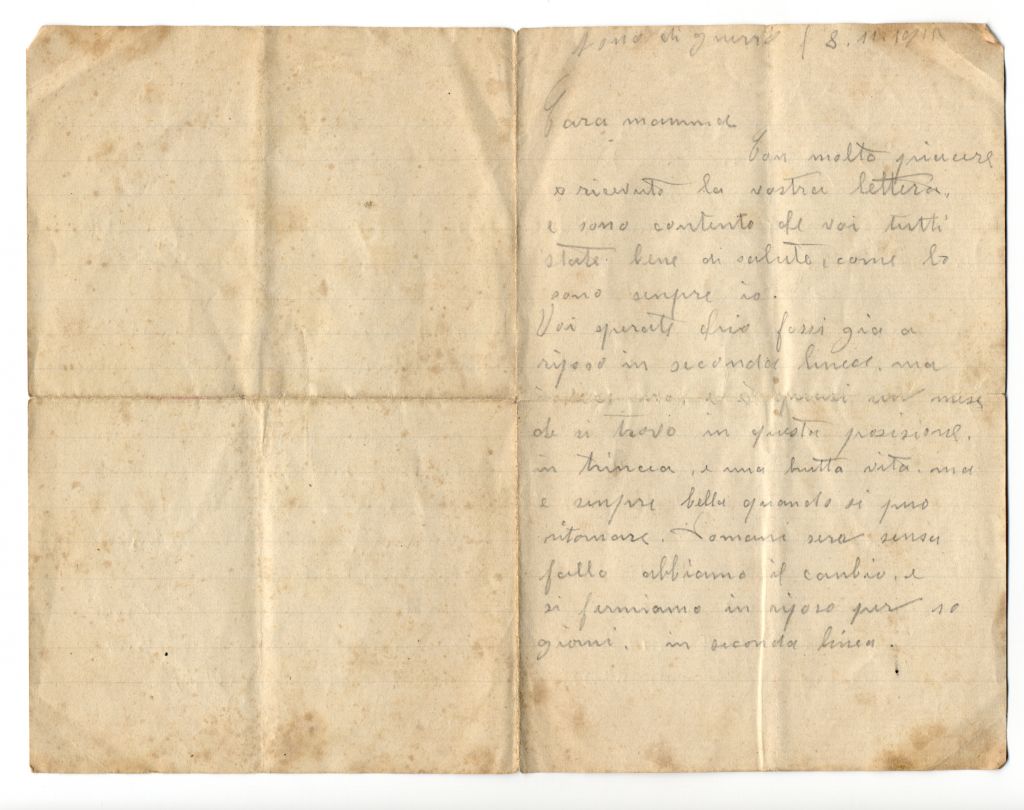 Zona di guerra 8.11.191
Cara mamma
Con molto piacere
o ricevuto la vostra lettera,
e sono contento che voi tutti
state bene di salute, come lo
sono senpre io.
Voi sperate ch'io fossi gia a
riposo in seconda linea, ma
no, e è quasi un mese
che si trovo in questa posisione,
in trincea, e una brutta vita. ma
e senpre bella quando si puo
ritornare. Domani sera sensa
fallo abbiamo il canbio, e
si fermiamo in riposo per 10
giorni, in seconda linea.